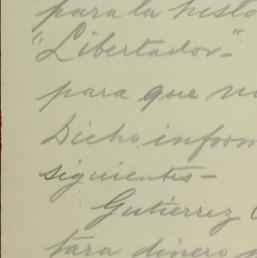 para la histo
"Libertador"-
para que
Dicho inform
siguientes-
Gutiérrez
tara dinero